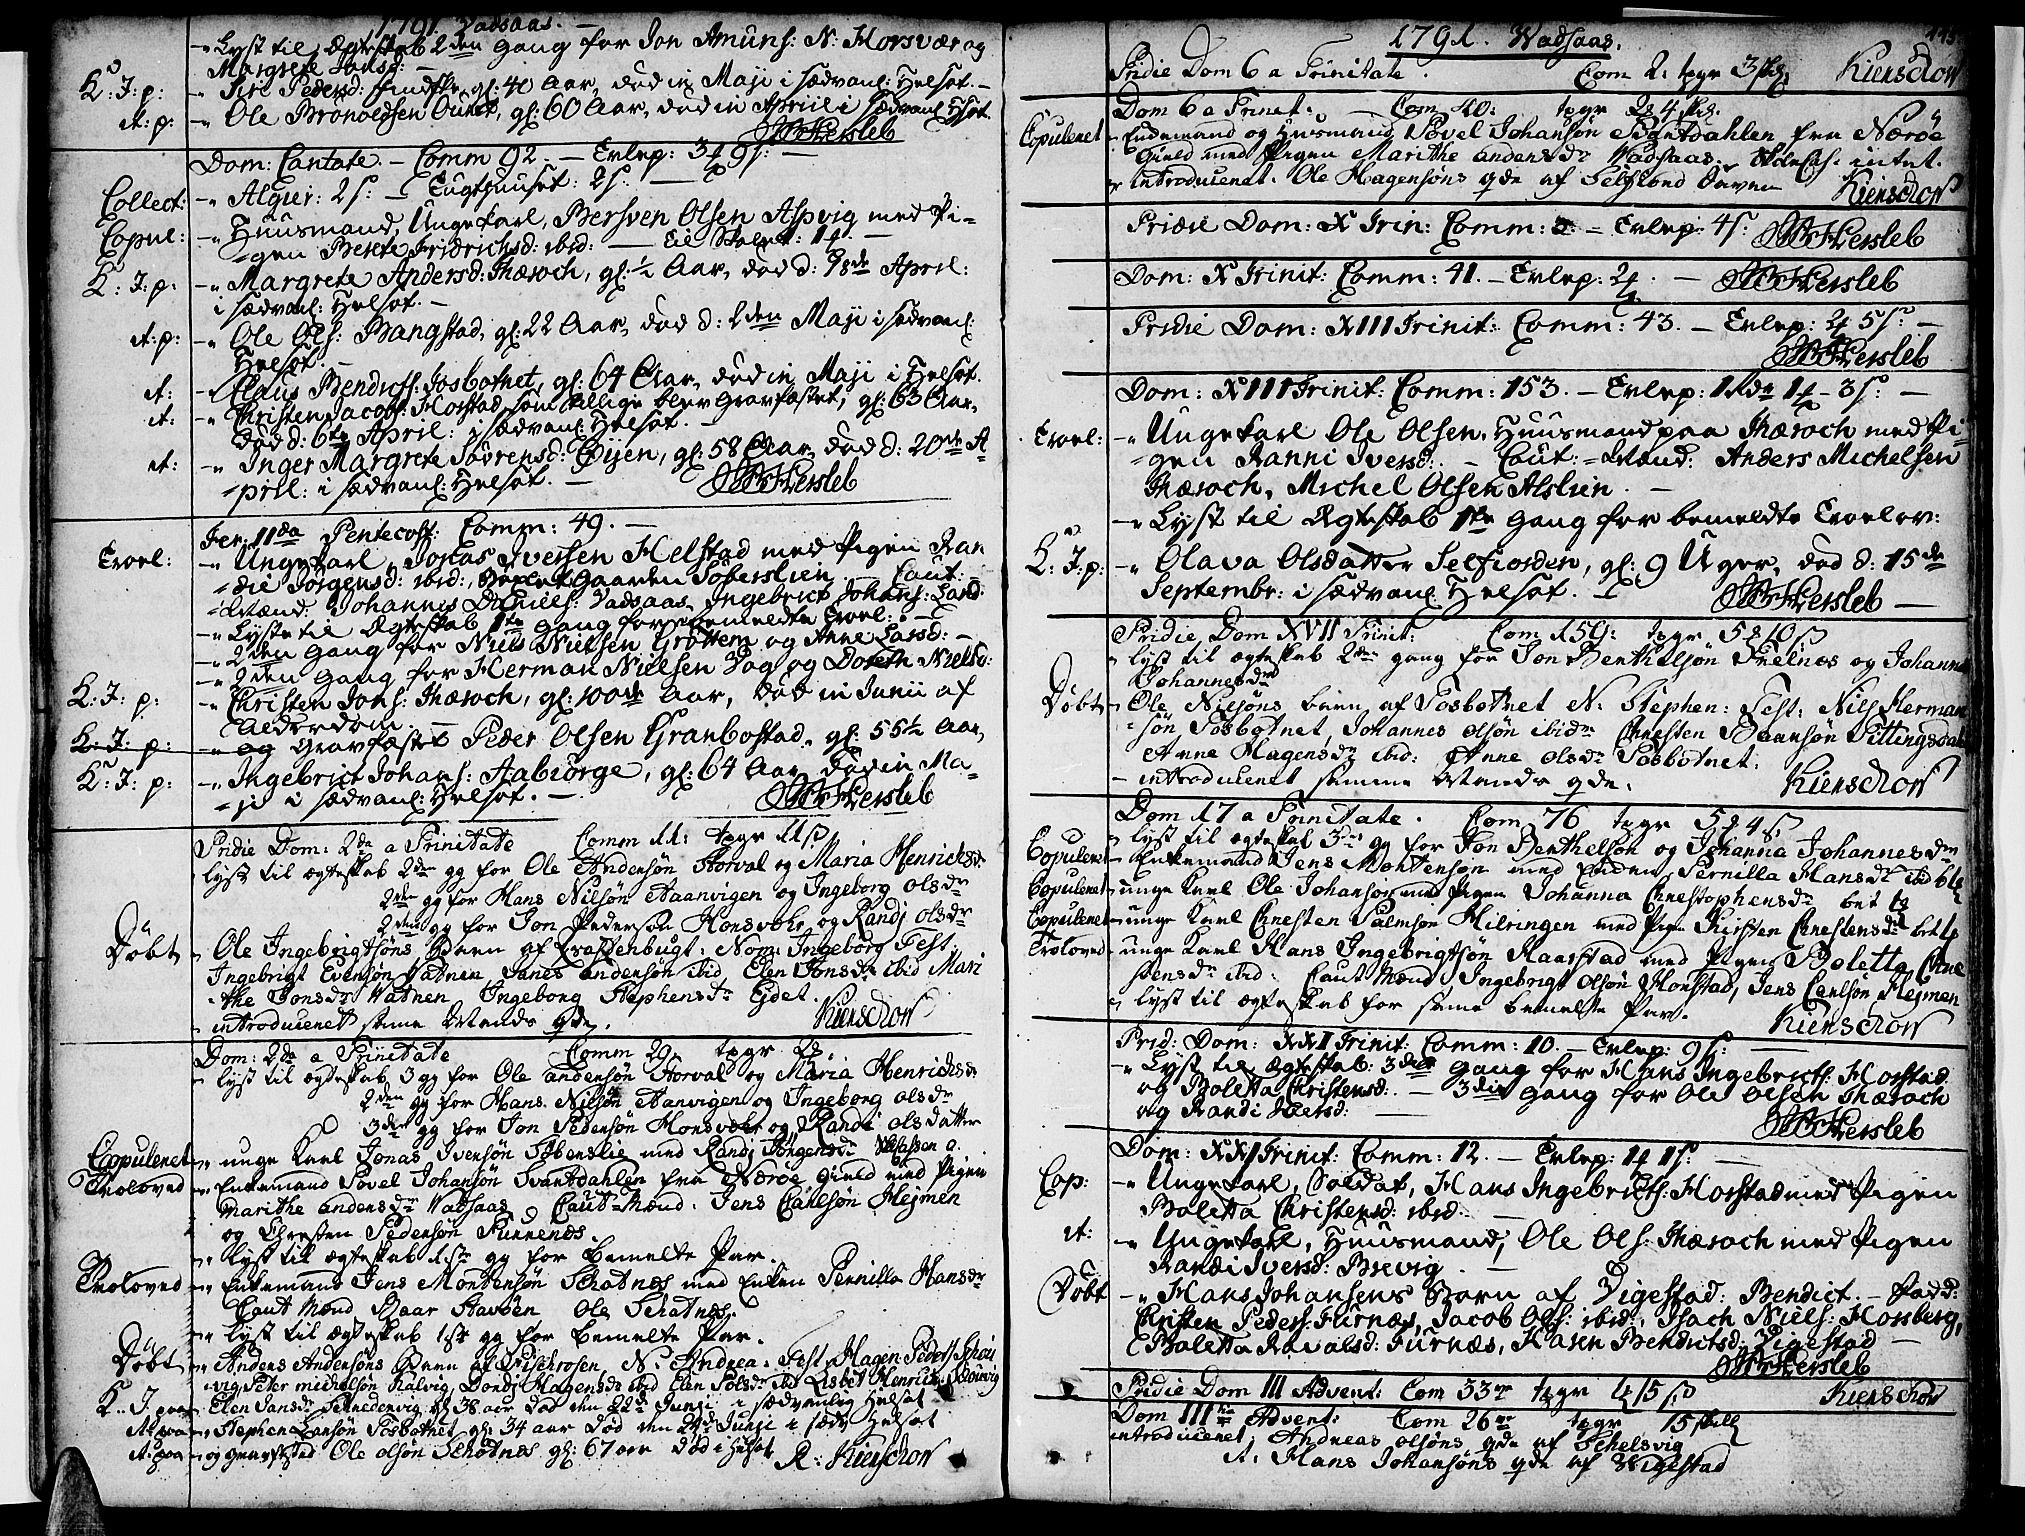 1791 Vadsaas.
-" Lyst til Ægteskab 2den Gang for Jon Amuns: N: Horsvær og
Margrete Jonsd: -
K: J: p: -" Siri Pedersd: Findske, gl: 40 Aar, død in Maji i sædvanl: Helsot. -
it: p: -" Ole Brønoldsen Ounet, gl: 60 Aar, død in Aprili i sædvanl: Hsot.
Hersleb
Dom: Cantate. - Comm 92. - Erlep: 3 9 s: -
Collect: -" Algier: 2 s: - Tugthuuset: 2 s: -
Copul: -" Huusmand, Ungekarl, Bersven Olsen Aspvig med Pi=
=gen Berete Fridrichsd: ibid: -
K: J: p: -" Margrete Andersd: Thæroch, gl: ½ Aar, død d: 8de April:
i sædvanl: Helsot. -
it: p: -" Ole Ols: Bangstad, gl: 22 Aar, død d: 2den Maji i sædvanl:
Helsot. -
it: - Claus Bendichs: Tosbotnet, gl: 64 Aar, død in Maji i Helsot.
it: -" Christen Jacobs: Horstad, som tillige blev Gravfæstet, gl: 63 Aar,
død d: 6te April: i sædvanl: Helsot. -
it: -" Inger Margrete Søvrensd: Øijen, gl: 58 Aar, død d: 20de A=
=pril: i sædvanl: Helsot. - Hersleb
Fer: IIda Pentecost: Comm: 49. -
Trol: -" Ungekarl, Jonas Iversen Helstad med Pigen Ran
=die Jørgensd: ibid:, Gaarden Søberslien - Caut:
=Mænd: Johannes Daniels: Vadsaas, Ingebrict Johans: Land
-" Lyst til Ægteskab 1te Gang for bemeldte Trol: -
-" 2den Gang for Niels Nielsen Grøttem og Anne Larsd: -
-" 2den Gang for Herman Nielsen Vog og Doreth Nielsd:
K: J: p: -" Christen Jons: Thæroch, gl: 100de Aar, død in Junii af
Alderdom. -
K: J: p: -" og Gravfæstet Peder Olsen Granbostad, gl: 55½ Aar,
K: J: p: -" Ingebrict Johans: Aabiørge, gl: 64 Aar, død in Ma=
=ji i sædvanl: Helsot. - Hersleb
Pridie Dom: 2da a Trinitate Comm 11: tegr 11 s
lyst til ægteskab 2den gg for Ole Andersøn Storval og Maria Henrichsdr
2den gg for Hans Nilsøn Aaanvigen og Ingeborg olsdr
2den gg for Jon Pedersøn Horsvær og Randj olsdr
Døbt - Ole Ingebrigtsøns Barn af Krakenbugt: Nom: Ingeborg Test:
Ingebrigt Evensøn Vatnen Janes Andersøn ibid, Elen Jonsdr ibid Mari
the Jonsdr Vatnen Ingeborg Stephensdr Ejdet.
introduceret samme Mands qde. Kierschow
Dom: 2da a Trinitate Comm 29 tegr
lyst til ægteskab 3 gg for Ole andersøn Storval og Maria Henrichsdr
2den gg for Hans Nilsøn Aanvigen og Ingeborg olsdr
3die gg for Jon Pedersøn Horsvær og Randi olsdatter
Copuleret -" unge Karl Jonas Iversøn Søberslie med Randj Jørgensdr
Troloved -" Enkemand Povel Johansøn Svartdahlen fra Nærøe Gield med Pigen
Marithe andersdr Vadsaas Caut=Mænd: Jens Carlsøn Hejmen
og Chresten Pedersøn Furrenes.
-" lyst til ægteskab 1ste gg for bemelte Par.
Troloved -" Enkemand Jens Mortensøn Schotnes med Enken Pernilla Hansdr
Caut Mænd Baar Havøen Ole Schatnes,
-" lyst til ægteskab 1st gg for bemelte Par.
Døbt -" Anders Andersøns Barn af Fischrosen, N: Andrea: Test Hagen Peders Schei
vig Peter michelsøn Kalvig, Dordj Hagensdr ibid Elen Polsdr ibid Lisbet Henrichsdr
K. J. paa - Elen Jansdr Sennedenvig gl: 38 aar død den 22de Junji i sædvanlig Helsot
it: paa - Stephen Larsøn Tosbotnet gl: 34 aar død den 24de Junji i sædv Helsot
it: paa - og gravfested Ole olsøn Schotnes gl: 67 aar død i Helsot R: Kierschow
1791. Wadsaas.
Pridie Dom 6 a Trinitate. Com 2: tegr 3 skg, Kierschow
Dom 6 a Trinit: - Com 40: tegr 2 4 skg.
Copuleret - Enkemand og Huusmand Povel Johansøn Svartdahlen fra Nærøe
Gield med Pigen Marithe andersdr Wadsaas. intet.
introduceret. Ole Hagensøns qde af Selfiord Kierschow
Pridie Dom: X Trin: Comm: 3. - Erlep: 4 s: Hersleb
Dom: X Trinit: Comm: 41. - Erlep: 2 - Hersleb
Pridie Dom: XIII Trinit: Comm: 43. - Erlep: 2 5 s: -
Hersleb
Dom: XIII Trinit: Comm: 153. - Erlep: 1 Rdr 1 - 3 s: -
Trol: -" Ungekarl Ole Olsen, Huusmand paa Thæroch med Pi=
=gen Ranni Iversd: - Caut:=Mænd: Anders Michelsen
Thæroch, Michel Olsen Alslien. -
-" Lyst til Ægteskab 1te Gang for bemeldte Trolov:
K: J: p: -" Olava Olsdatter Selfiorden, gl: 9 Uger, død d: 15de
Septembr: i sædvanl: Helsot. - Hersleb -
Pridie Dom XVII Trinit: Com 159: tegr 5 10 s
lyst til ægteskab 2den gang for Jon Berthelsøn Trelnes og Johanna
Johannesdr
Døbt - Ole Nilsøns barn af Tosbotnet N: Stephen: Test: Nils Herman
søn Tosbotnet, Johannes olsøn ibidm Chresten Baarsøn Sittingsdal
Anne Hagensdr ibid: Anne olsdr Tosbotnet.
- introduceret samme Mands qde. Kierschow
Dom 17 a Trinitate. Com 76 tegr 5 4 s.
- lyst til ægteskab 3die gg for Jon Berthelsøn og Johanna Johannesdr
Copuleret - Enkemand Jens Mortensøn med Enken Pernilla Hansdr ibid
Copuleret - unge Karl Ole Johansøn med Pigen Johanna Chrestophersdr bet
Copuleret - unge Karl Chresten Palmsøn Hilringen med Pigen Kirsten Chrestensdr bet
Troloved - unge Karl Hans Ingebrigtsøn Haarstad med Pigen Boletta Chre
stensdr ibid: Caut Mænd Ingebrigt olsøn Horstad, Jens Carlsøn Hejmen
lyst til ægteskab for same bemelte Par. Kierschow
Prid: Dom: XXI Trinit: Comm: 10. - Erlep: 9 s: -
-" Lyst til Ægteskab: 3die Gang for Hans Ingebricts: Horstad
og Boletta Christensd: - 3die Gang for Ole Olsen Thæroch
og Randi Iversd: - Hersleb
Dom: XXI Trinit: Comm: 12. - Erlep: 1 1 s: -
Cop: -" Ungekarl, Soldat, Hans Ingebricts: Horstad med Pigen
Boletta Christensd: ibid. -
it: -" Ungekarl, Huusmand, Ole Ols: Thæroch med Pigen
Randi Iversd: Brevig. -
Døbt -" Hans Johansens Barn af Vigestad: Bendict. - Fadd:
Christen Peders: Furnæs, Jacob Ols: ibid:, Isach Niels: Horsberg,
Boletta Ravalsd: Furnæs, Karen Bendictsd: Vigestad -
Hersleb
Pridie Dom III Advent: Com 33 tegr 15 s Kierschow
Dom III Advent: Com 26 tegr 15 skill
introduceret: Andreas olsøns qde af Schelsvig
it. Hans Johansøns qde af Wigestad